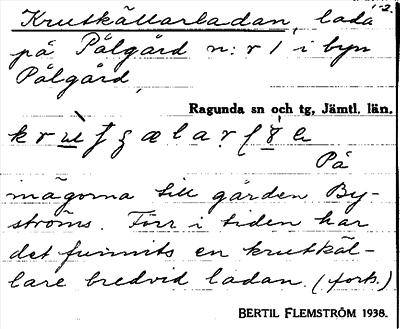 1-2.
Krutkällarladan, lada
på Pålgård n:r 1 i byn
Pålgård,
Ragunda sn och tg, Jämtl. län.
På
mågorna till gården By-
ströms. Förr i tiden har
det funnits en krutkäl-
lare bredvid ladan. (forts.)
BERTIL FLEMSTRÖM 1938.